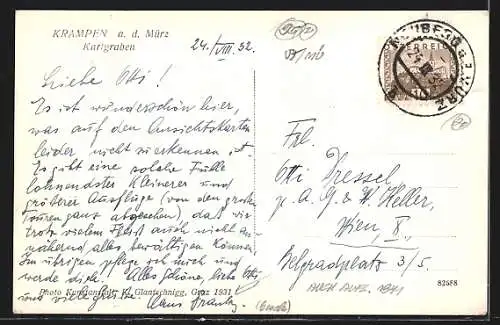 KRAMPEN a. d. Mürz
Karlgraben
24./VIII. 32.
Liebe Otti!
Es ist wunderschön hier,
was auf den Ansichtskarten
leider nicht zu erkennen ist.
Es gibt eine solche Fülle
lohnendster kleinerer und
größerer Ausflüge (von den großen
Touren ganz abgesehen), daß wir
trotz vielem Fleiß auch nicht an-
nähernd alles bewältigen können.
Im übrigen pflege ich mich und
werde dick. Alles Schöne, liebe Otti
und viele Grüße. Hans
Photo Kunstanstalt K. Glantschnigg, Graz 1931
NEUBERG a. d. MÜRZ
ÖSTERREICH
Frl.
Otti Dressel
p. A. G. & H. Heller,
Wien, X.,
Belgradplatz 3/5.
82558